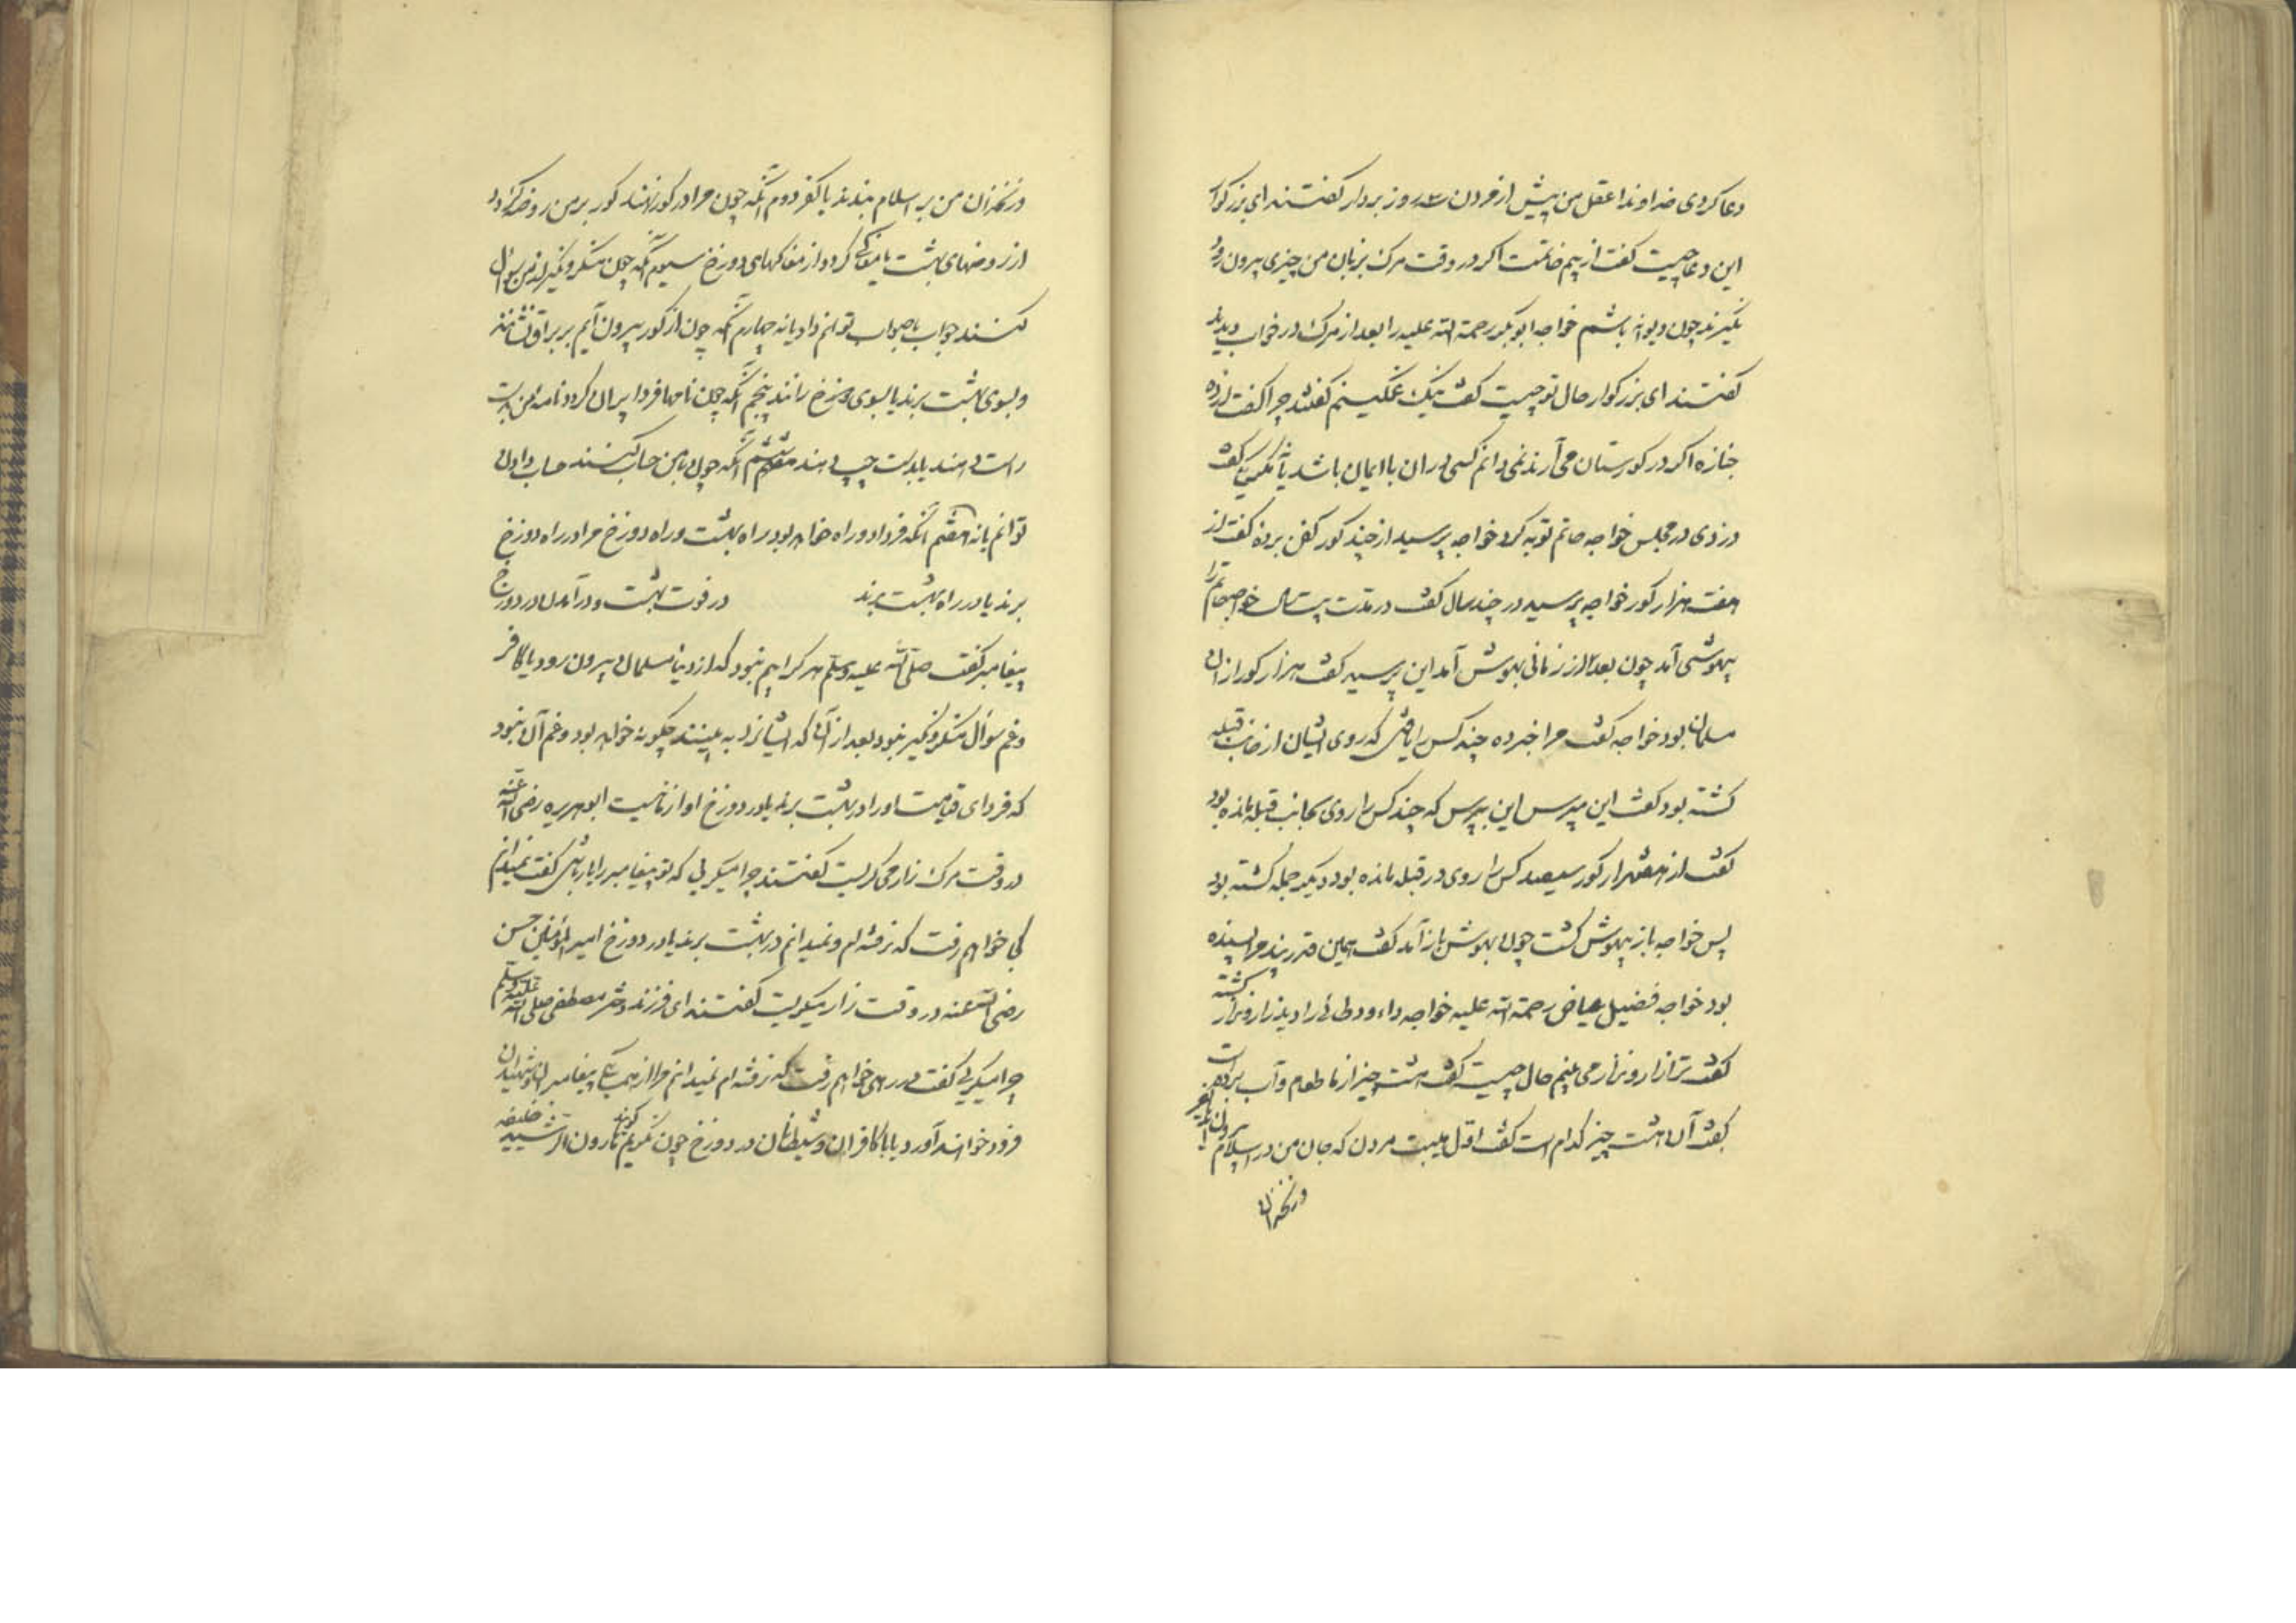 دعا کردی خداوندا عقل من پیش از مردن سه روز بردار گفتند ای بزرگوار
این دعا چیست گفت از بیم خاتمت اگر در وقت مرگ بزبان من چیزی بیرون رود
نگیرند چون دیوانه باشم خواجه ابوبکر رحمة الله علیه را بعد از مرگ در خواب دیدند
گفتند ای بزرگوار حال تو چیست گفت نیک غمگینم گفتند چرا گفت از ده
جنازه اگر در گورستان می آرند نمی دانم کسی در ان با ایمان باشد یا نه
دزدی در مجلس خواجه حاتم توبه کرد خواجه پرسید از چند گور کفن برده گفت از
هفت هزار گور خواجه پرسید در چند سال گفت در مدت بیست سال خواجه حاتم را
بیهوشی آمد چون بعد از زمانی بهوش آمد این پرسید گفت هزار گور از ان
مسلمانان بود خواجه گفت مرا خبر ده چند کس را یافتی که روی ایشان از جانب قبله
گشته بود گفت این مپرس این بپرس که چند کس را روی بجانب قبله مانده بود
گفت از هفتهزار گور سیصد کس را روی در قبله مانده بود دیگر جمله گشته بود
پس خواجه باز بیهوش گشت چون بهوش باز آمد گفت همین قدر پند مرا بسنده
بود خواجه فضیل عیاض رحمة الله علیه خواجه داود طائی را دید زار و نزار گشته
گفت ترا زار و نزار می بینم حال چیست گفت هشت چیز از ما طعام و آب برده است
گفت آن هشت چیز کدام است گفت اول هیبت مردن که جان من در اسلام بیرون آید یا در کفر
در نحران
در نحران من بر اسلام بندند یا کفر دوم آنکه چون مرا در گور نهند گور بر من روضه گردد
از روضهای بهشت یا مغاکی گردد از مغاکهای دوزخ سیوم آنکه چون منکر و نکیر از من سوال
کنند جواب باصواب توانم داد یا نه چهارم آنکه چون از گور بیرون آیم بر براق نشانند
و بسوی بهشت برند یا بسوی دوزخ رانند پنجم آنکه چون نامها فردا پران گردد نامه من بدست
راست دهند یا بدست چپ دهند ششم آنکه چون با من حساب کنند حساب دادن
توانم یا نه هفتم آنکه فردا دو راه خواهد بود راه بهشت و راه دوزخ مرا در راه دوزخ
برند یا در راه بهشت برند در فوت بهشت و در آمدن در دوزخ
پیغامبر گفت صلی الله علیه وسلم هر کرا بیم نبود که از دنیا مسلمان بیرون رود یا کافر
و غم سوال منکر و نکیر نبود بعد از آن که ایشانرا به بیند چگونه خواهد بود و غم آن نبود
که فردای قیامت او را در بهشت برند یا در دوزخ او از ما نیست ابوهریره رضی الله عنه
در وقت مرگ زار می گریست گفتند چرا میگریی که تو پیغامبر را یار باشی گفت نمیدانم
کجا خواهم رفت که نرفته ام و نمیدانم در بهشت برند یا در دوزخ امیر المؤمنین حسن
رضی الله عنه در وقت زار میگریست گفتند ای فرزند دختر مصطفی صلی الله علیه وسلم
چرا میگریی گفت در رهی خواهم رفت که نرفته ام نمیدانم مرا از همسایگی پیغامبران و شهیدان
فرود خواهند آورد یا با کافران و شیطانان در دوزخ چون نگریم گویند هارون الرشید خلیفه